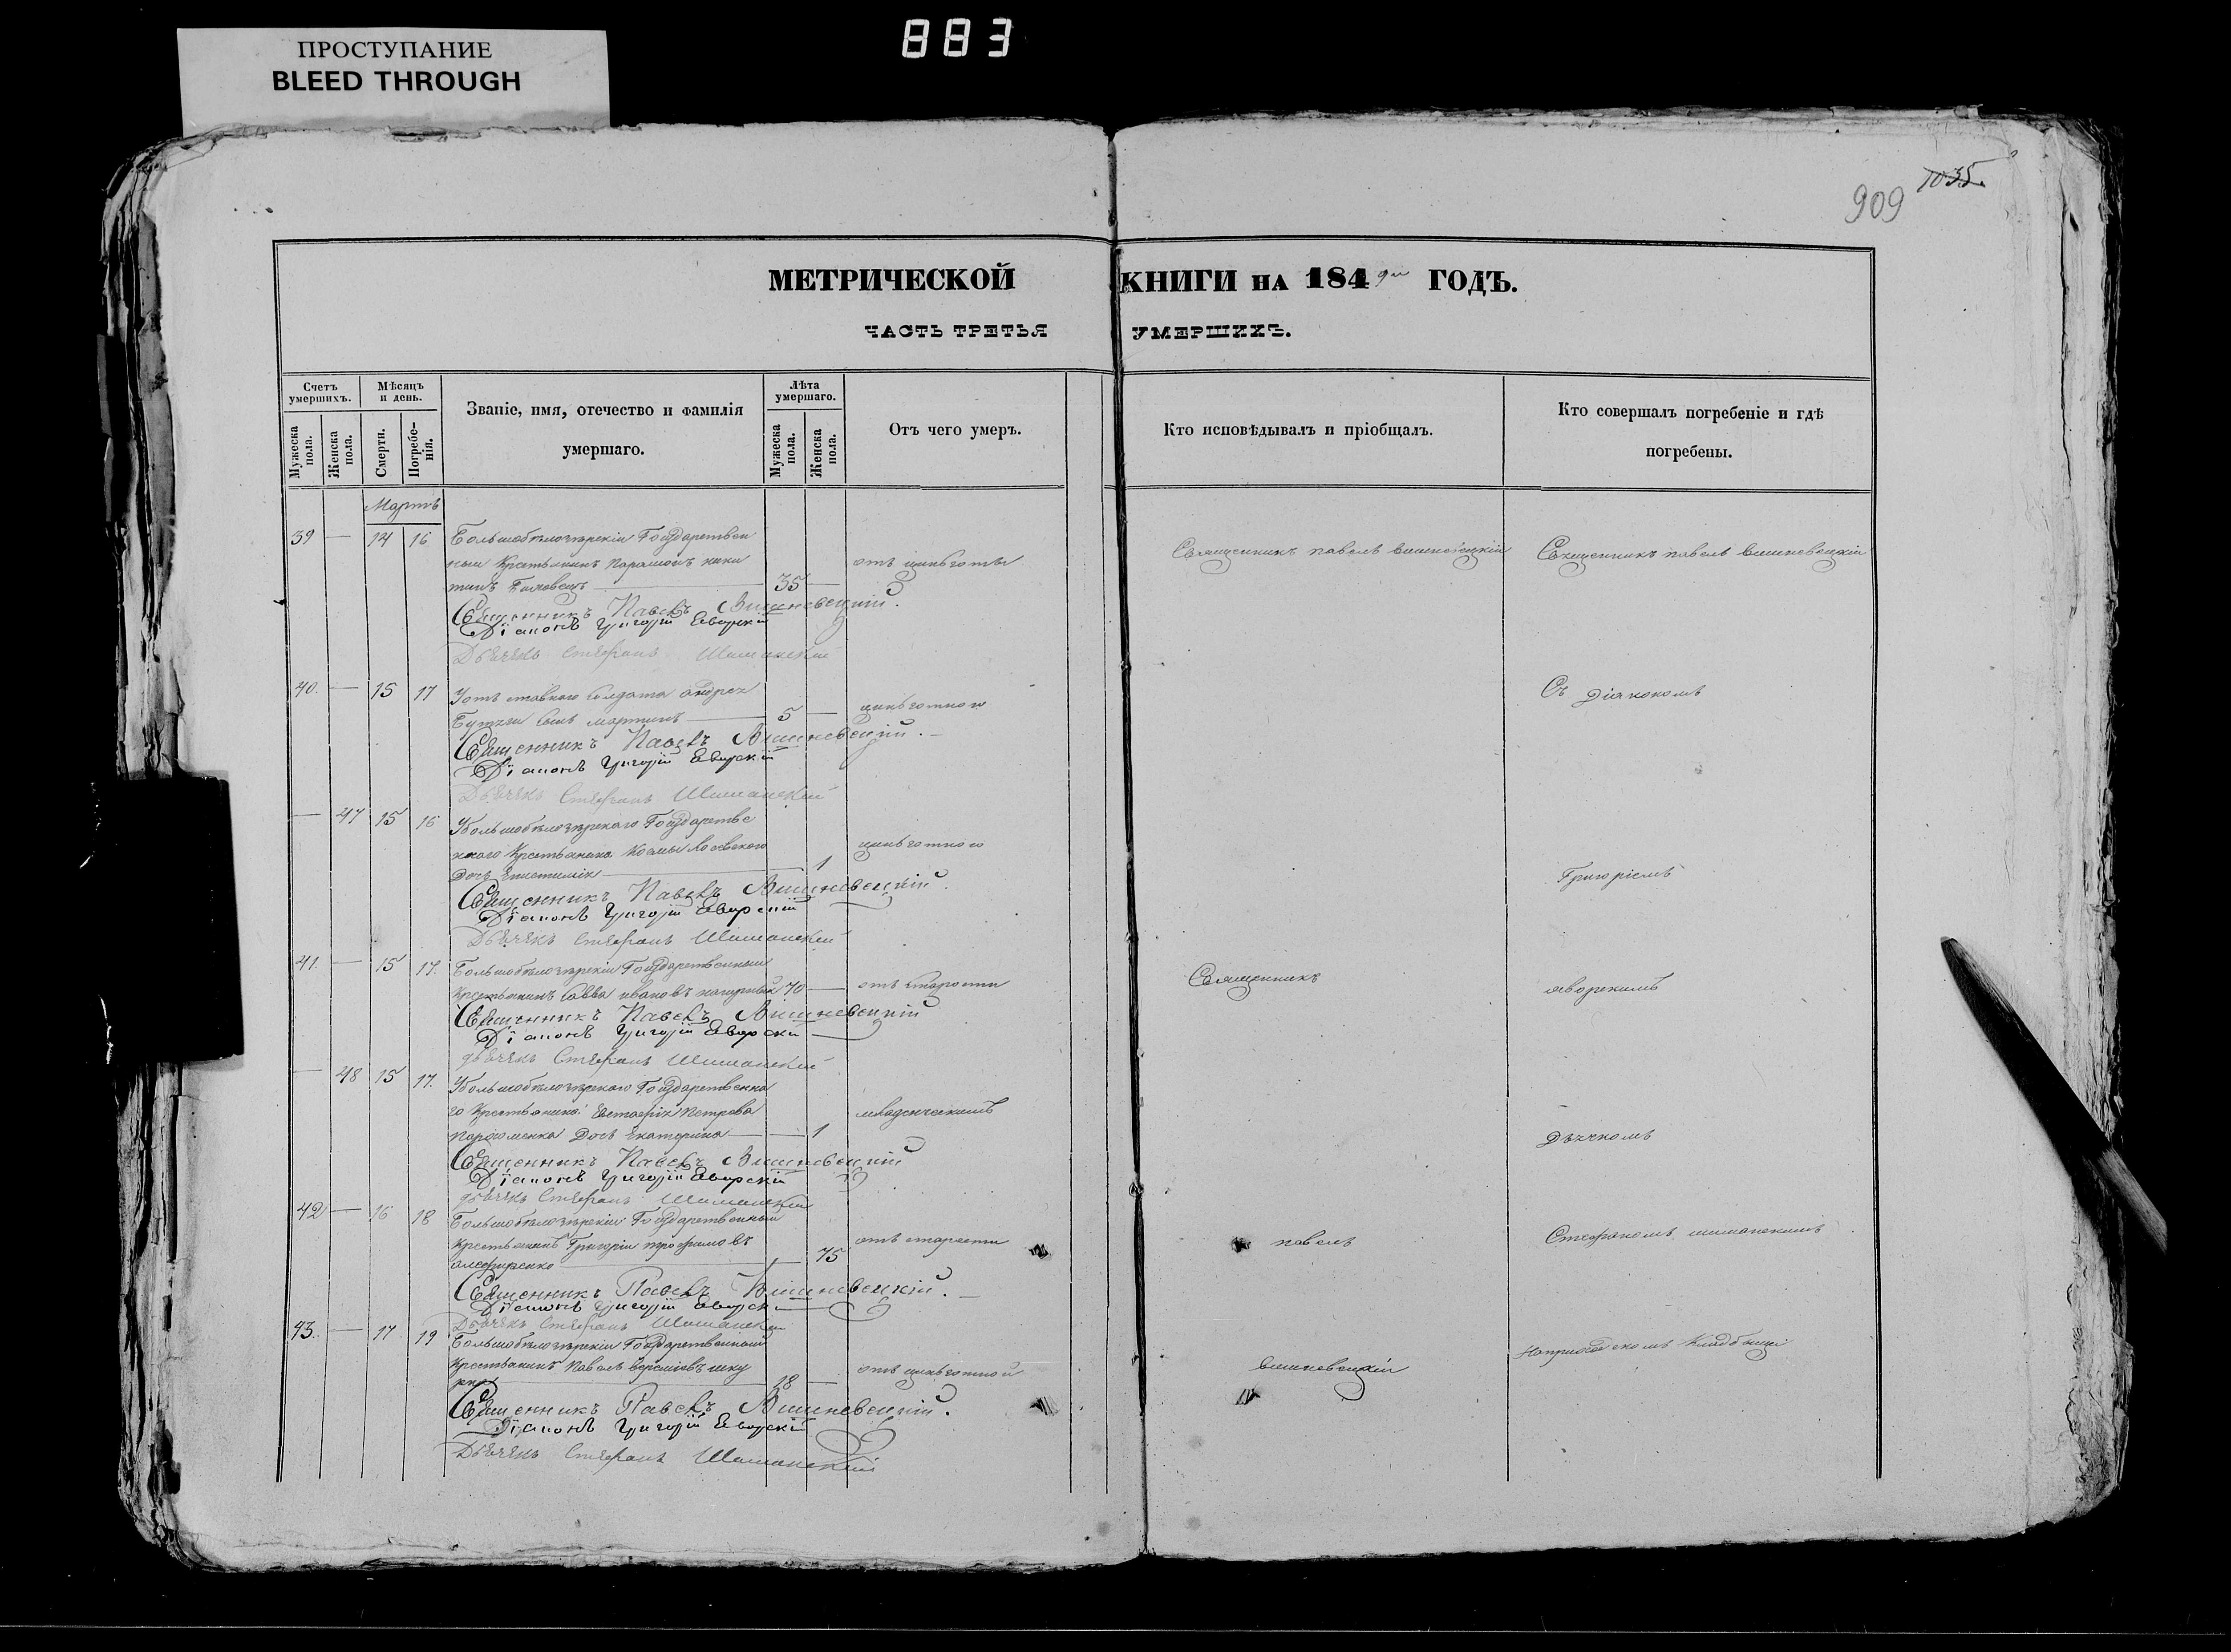 883
ПРОСТУПАНИЕ
BLEED THROUGH
1035.
909
МЕТРИЧЕСКОЙ КНИГИ НА 1849 ГОДЪ.
ЧАСТЬ ТРЕТЬЯ УМЕРШИХЪ.
Счетъ умершихъ.
Мужеска пола.
Женска пола.
Мѣсяцъ и день.
Смерти.
Погребенія.
Званіе, имя, отечество и фамилія
умершаго.
Лѣта умершаго.
Мужеска пола.
Женска пола.
Отъ чего умеръ.
Кто исповѣдывалъ и пріобщалъ.
Кто совершалъ погребеніе и гдѣ
погребены.
Мартъ
39 — 14 16 Большобѣлозѣрскій Государствен
ный Крестьянинъ Парамонъ ники
тинъ 35 — отъ цынготы
Священникъ Павелъ Вишневецкій.
Діаконъ Григорій Яворскій
Дьячекъ Стефанъ Шиманскій
Священникъ павелъ вишневецкій
Священникъ павелъ вишневецкій
40. — 15 17 У отставнаго Солдата андрея
сынъ мартинъ — 5 — цынготною
Священникъ Павелъ Вишневецкій.
Діаконъ Григорій Яворскій
Дьячекъ Стефанъ Шиманскій
Съ Діакономъ
— 47 15 16 У большобѣлозѣрскаго Государстве
ннаго Крестьянина Космы
Дочь Епистимія — 1 цынготною
Священникъ Павелъ Вишневецкій.
Діаконъ Григорій Яворскій
Дьячекъ Стефанъ Шиманскій
Григоріемъ
41. — 15 17. Большобѣлозѣрскій Государственный
Крестьянинъ Савва ивановъ 70 — отъ старости
Священникъ Павелъ Вишневецкій
Діаконъ Григорій Яворскій
дьячекъ Стефанъ Шиманскій
Священникъ
яворскимъ
— 48 15 17. У большобѣлозѣрскаго Государственна
го Крестьянина Евстафія Петрова
Дочь Екатерина — 1 младенческимъ
Священникъ Павелъ Вишневецкій
Діаконъ Григорій Яворскій
дьячекъ Стефанъ Шиманскій
Дьячкомъ
42 — 16 18 Большобѣлозѣрскій Государственный
Крестьянинъ Григорій трофимовъ
алефиренко — 75 отъ старости
Священникъ Павелъ Вишневецкій.
Діаконъ Григорій Яворскій
Дьячекъ Стефанъ Шиманскій
павелъ
Стефаномъ шиманскимъ
43. — 17 19 Большобѣлозѣрскій Государственный
Крестьянинъ Павелъ 18 — отъ цынготной
Священникъ Павелъ Вишневецкій.
Діаконъ Григорій Яворскій
Дьячекъ Стефанъ Шиманскій
вишневецкій
На приходскомъ Кладбищи